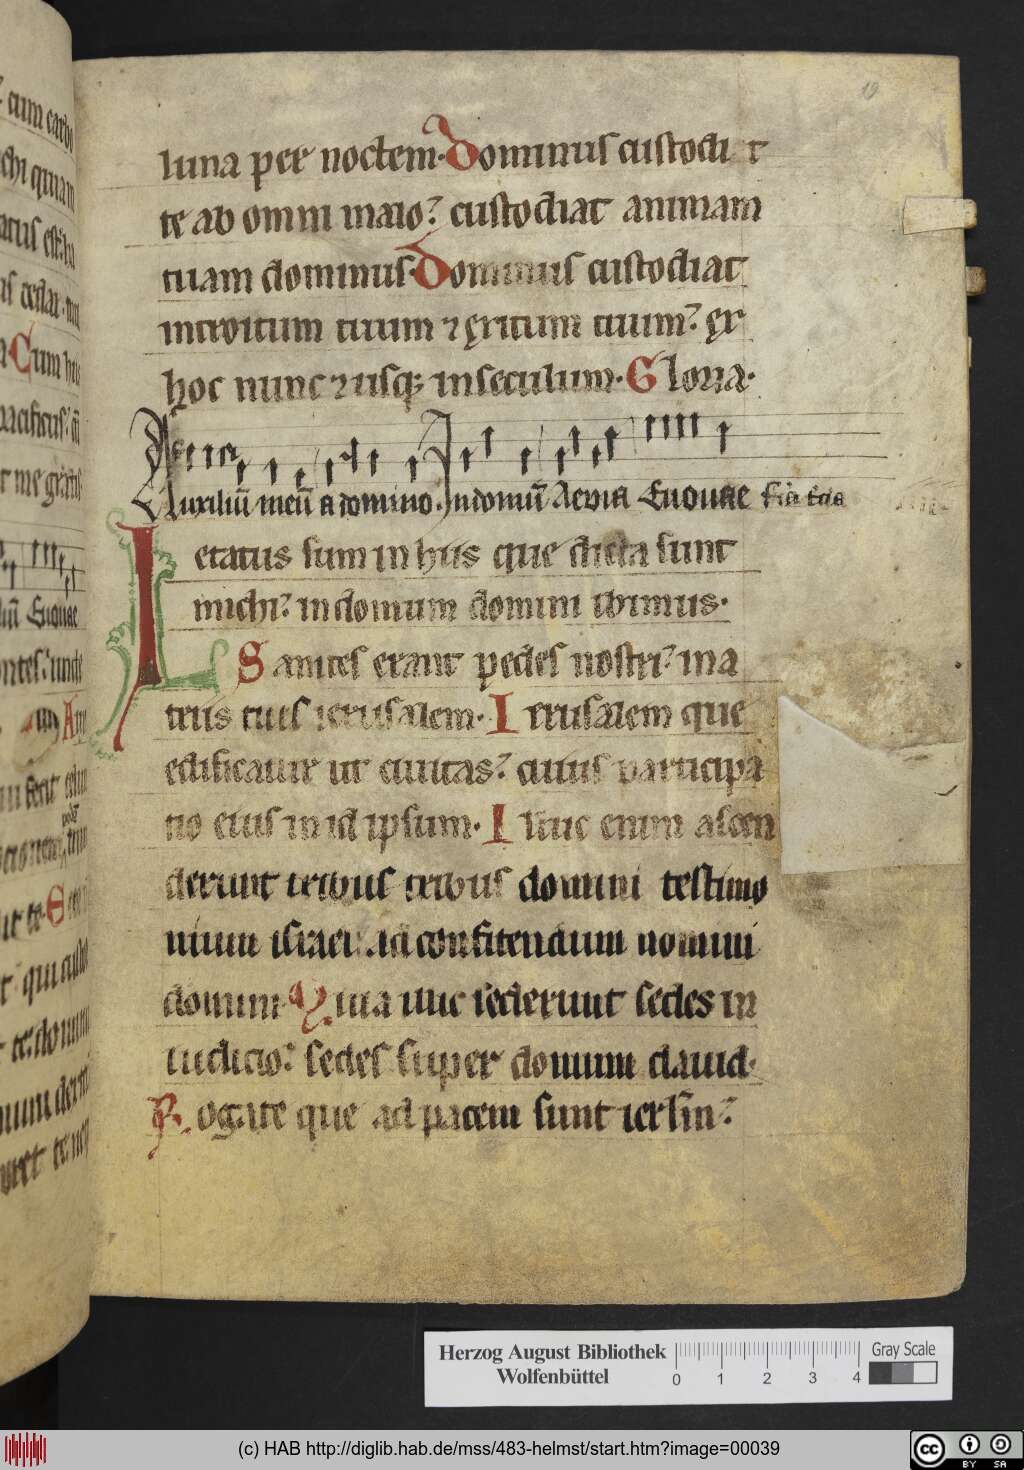 19
luna per noctem. Dominus custodi t
te ab omni malo? custodiat animam
tuam dominus. Dominus custodiat
introitum tuum ⁊ exitum tuum? ex
hoc nunc ⁊ usq; in seculum. Gloria.
Auxiliū meū a domino. In domū Aevia Euouae
Letatus sum in hiis que dicta sunt
michi? in domum domini ibimus.
Stantes erant pedes nostri? in a
triis tuis ierusalem. Ierusalem que
edificatur ut ciuitas? cuius participa
tio eius in id ipsum. Illuc enim ascen
derunt tribus tribus domini testimo
nium israel ad confitendum nomini
domini Quia illic sederunt sedes in
iudicio? sedes super domum dauid.
Rogate que ad pacem sunt ierlm̄?
cum carbo
Cum hiis
me gratis
Euouae
Herzog August Bibliothek
Wolfenbüttel
0 1 2 3 4
Gray Scale
(c) HAB http://diglib.hab.de/mss/483-helmst/start.htm?image=00039
cc BY SA